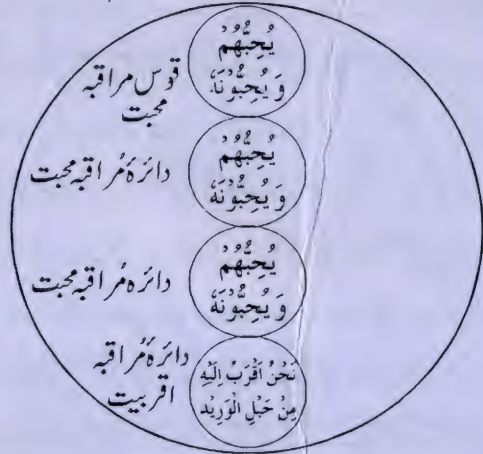 يُحِبُّهُمْ
وَ يُحِبُّوْنَهٗ
قوس مراقبہ
محبت
يُحِبُّهُمْ
وَ يُحِبُّوْنَهٗ
دائرۂ مُراقبہ محبت
يُحِبُّهُمْ
وَ يُحِبُّوْنَهٗ
دائرہ مُراقبہ محبت
نَحْنُ اَقْرَبُ اِلَيْهِ
مِنْ حَبْلِ الْوَرِيْد
دائرۂ مُراقبہ
اقربیت